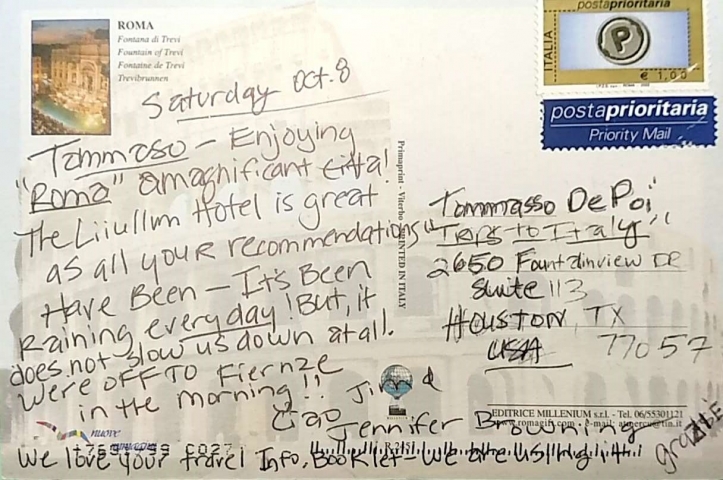 ROMA
Fontana di Trevi
Fountain of Trevi
Fontaine de Trevi
Trevibrunnen
Saturday Oct. 8
Tommaso - Enjoying
"Roma" a magnificant citta!
The Hotel is great
as all your recommendations
Have Been - It's Been
Raining everyday! But, it
does not slow us down at all.
We're OFF TO Fiernze
in the morning!!
Ciao Jim &
Jennifer Browning
We love your travel Info, Booklet - We are using it!
grazie
Primaprint - Viterbo PRINTED IN ITALY
postaprioritaria
ITALIA
P
€ 1,00
postaprioritaria
Priority Mail
Tommasso De Poi
"Trips to Italy"
2650 Fountainview DR
Suite 113
Houston, TX
USA 77057
EDITRICE MILLENIUM s.r.l. - Tel. 06/55301121
nuove